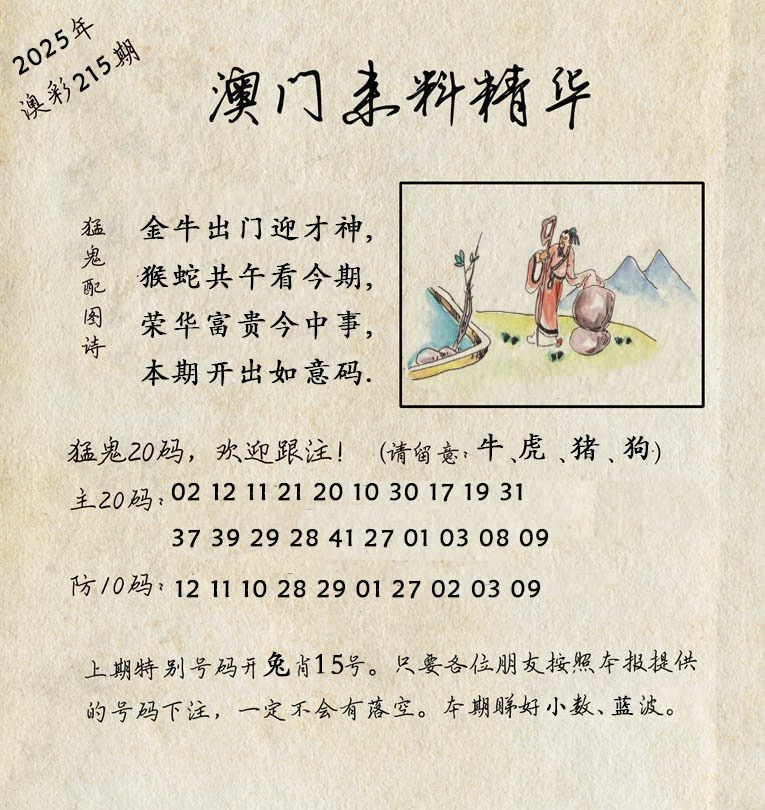 2025年
澳彩215期
澳门来料精华
猛鬼配图诗
金牛出门迎才神,
猴蛇共午看今期,
荣华富贵今中事,
本期开出如意码.
猛鬼20码，欢迎跟注！（请留意：牛、虎、猪、狗）
主20码：02 12 11 21 20 10 30 17 19 31
37 39 29 28 41 27 01 03 08 09
防10码：12 11 10 28 29 01 27 02 03 09
上期特别号码开兔肖15号。只要各位朋友按照本报提供
的号码下注，一定不会有落空。本期睇好小数、蓝波。